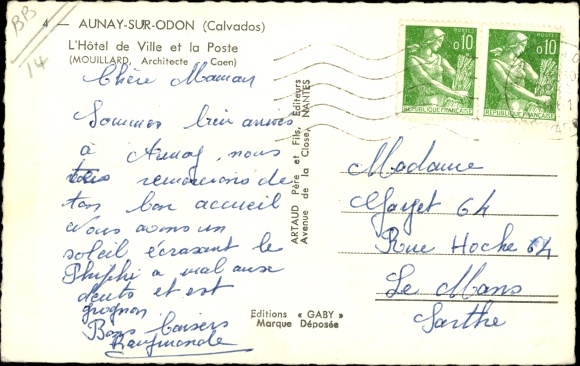 BB
14
4 — AUNAY-SUR-ODON (Calvados)
L'Hôtel de Ville et la Poste
(MOUILLARD, Architecte à Caen)
Chère Maman
Sommes bien arrivés
à Aunay, nous
te remercions de
ton bon accueil
Nous avons un
soleil écrasant le
a mal aux
dents et est
grognon
Bons baisers
Raymonde
ARTAUD Père et Fils, Editeurs
Avenue de la Close, NANTES
Editions « GABY »
Marque Déposée
POSTES
0,10
REPUBLIQUE FRANÇAISE
POSTES
0,10
REPUBLIQUE FRANÇAISE
Madame
64
Rue Hoche 64
Le Mans
Sarthe